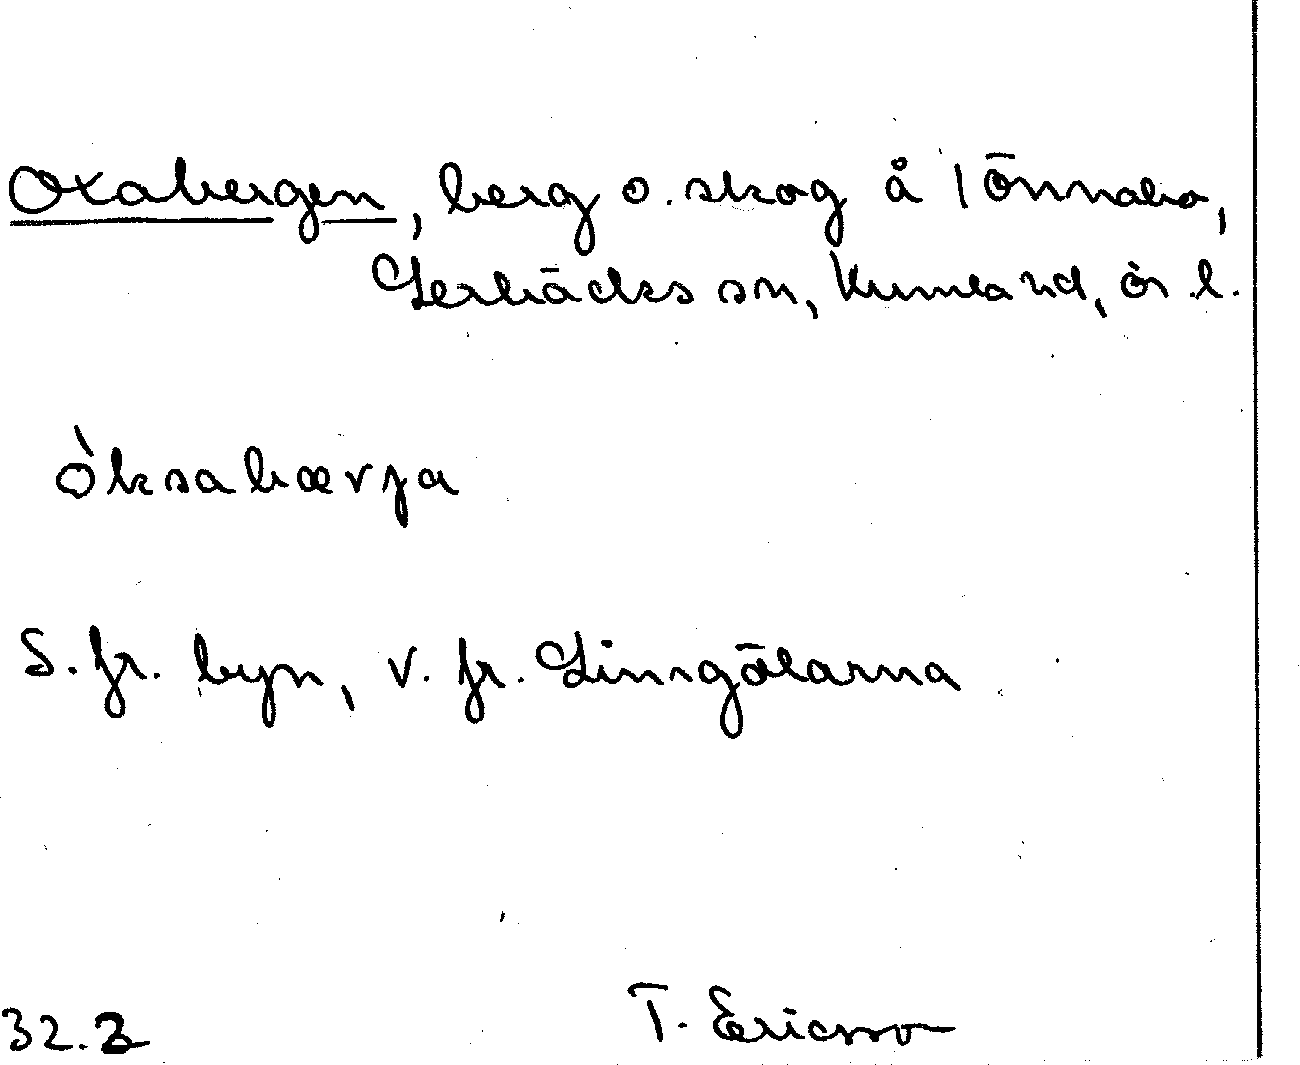 Oxabergen, berg o. skog å 1 Önnabo,
Lerbäcks sn, Kumla hd, ör. l.
òksabærja
S. fr. byn, v. fr. Limgölarna
32.3
T. Ericsson